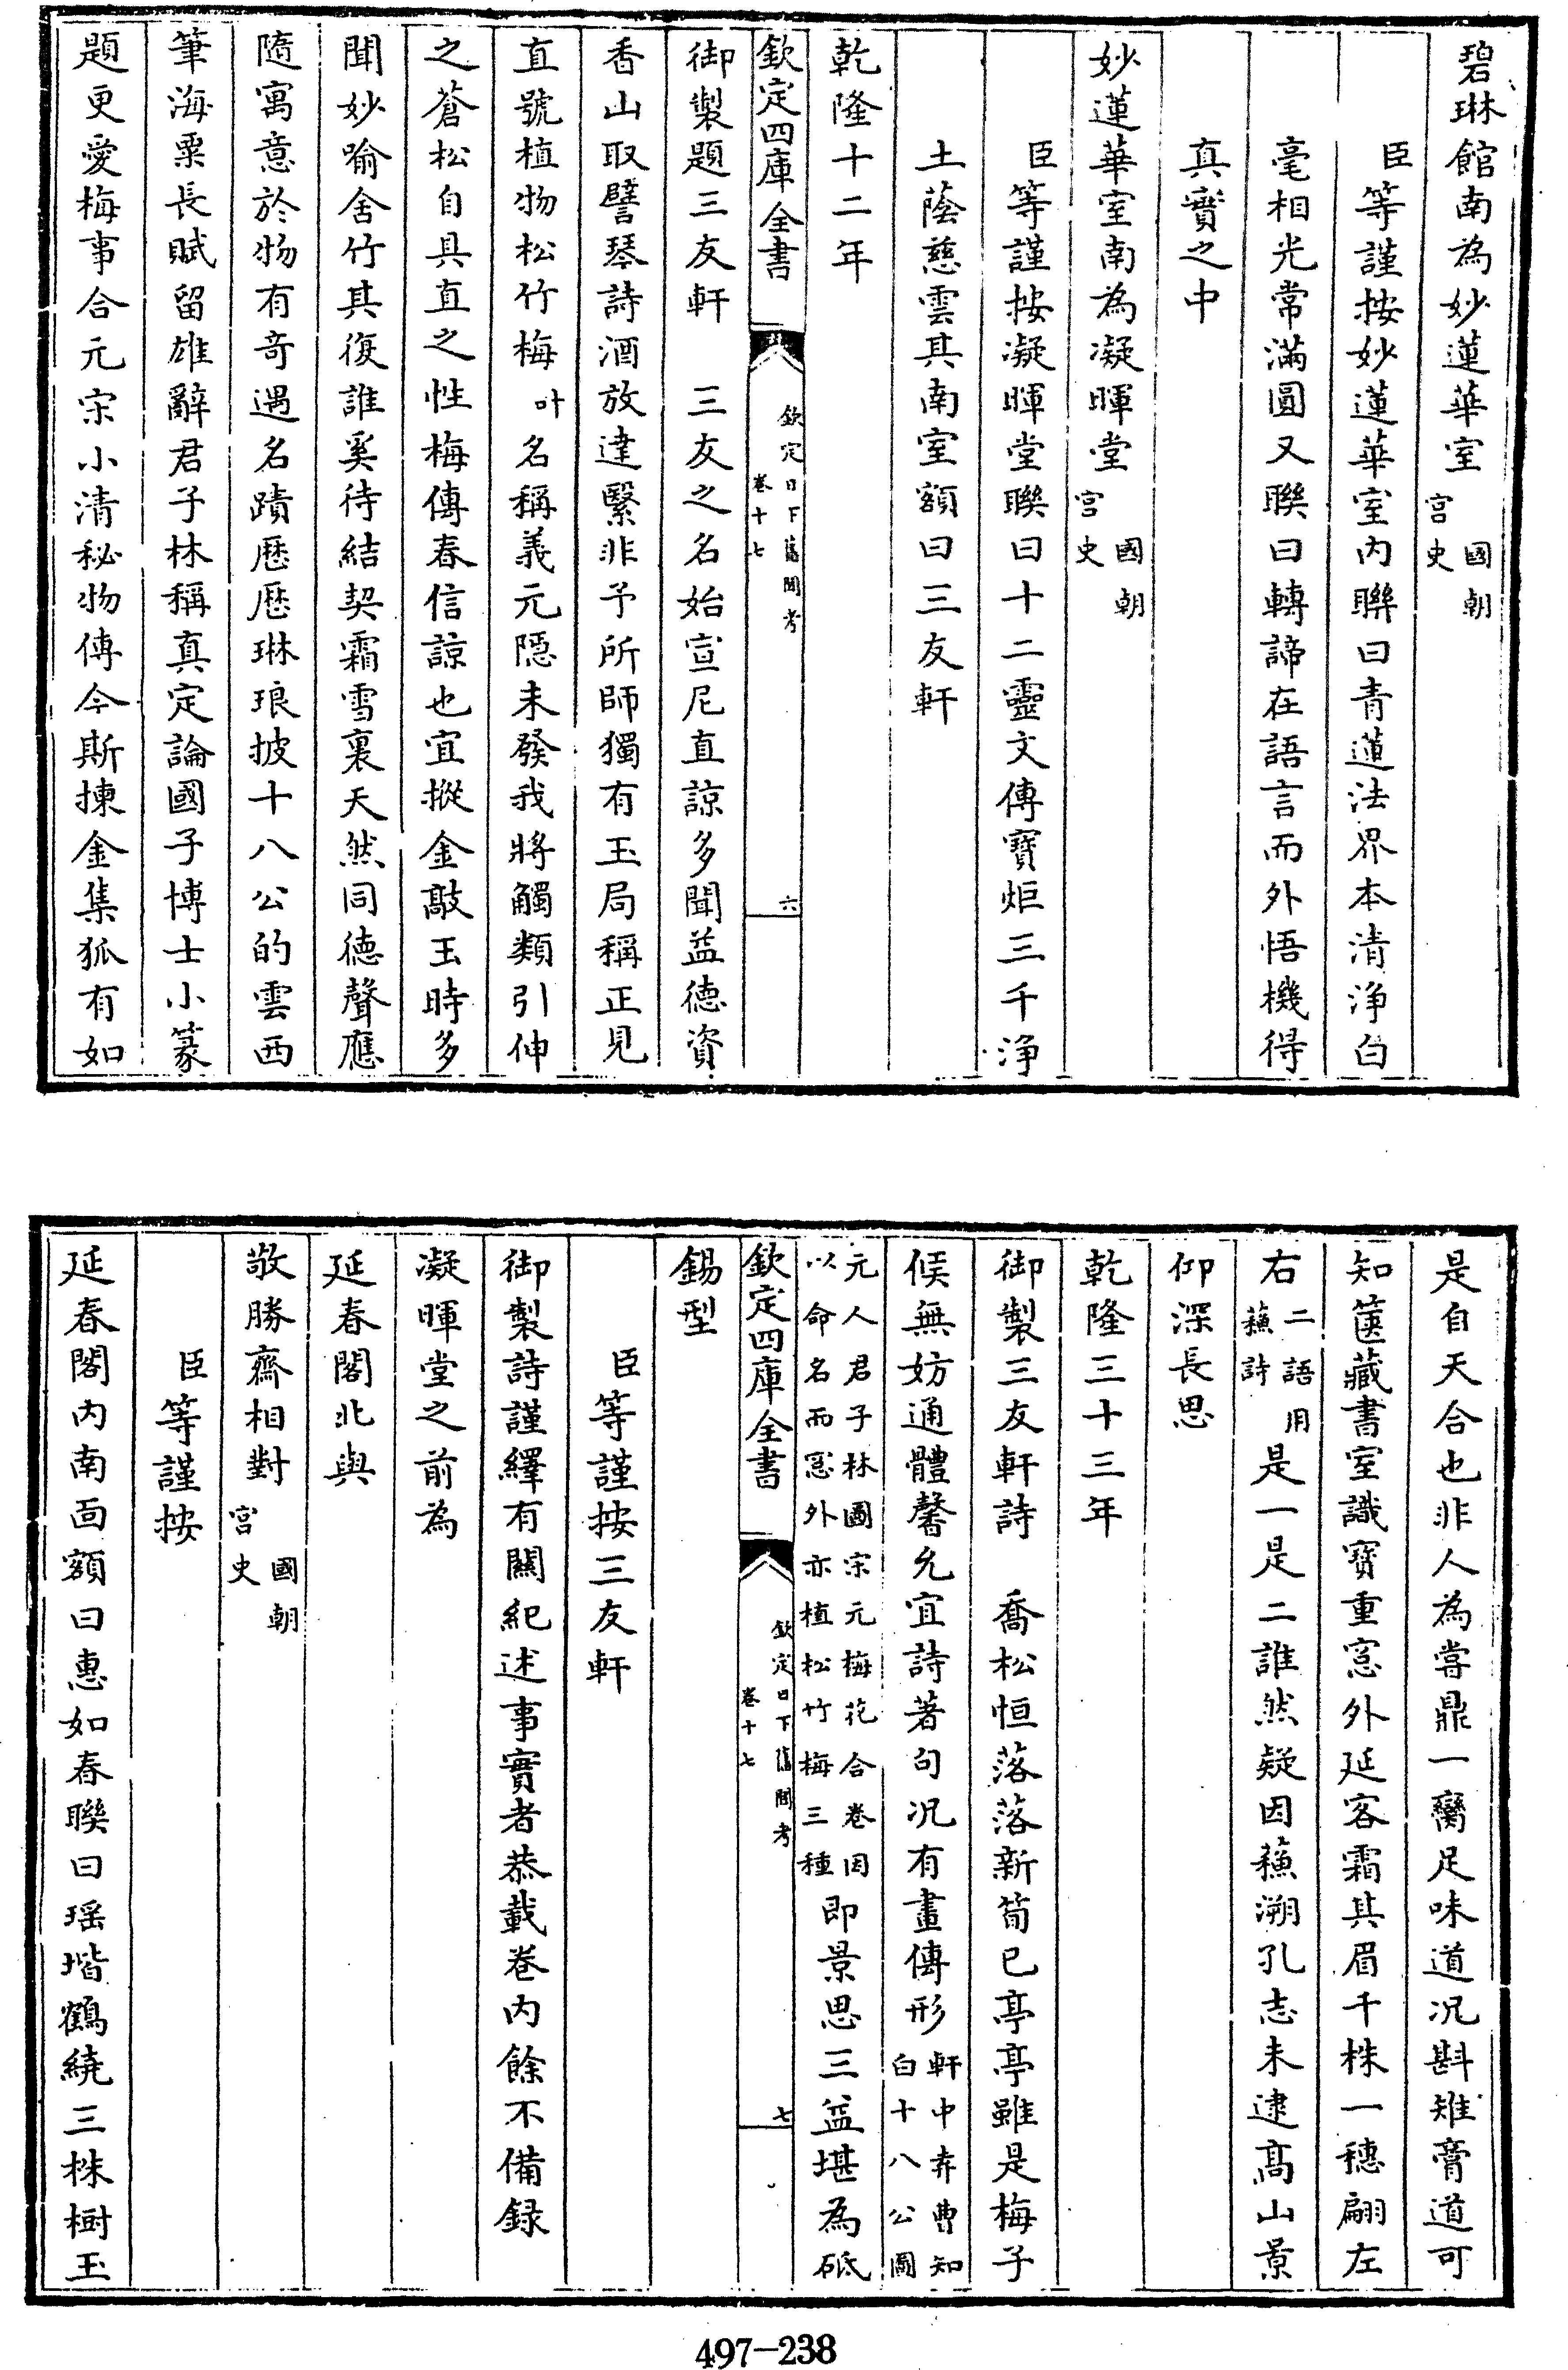 碧琳館南為妙蓮華室國朝宮史
臣等謹按妙蓮華室內聯曰青蓮法界本清淨白
毫相光常滿圓又聯曰轉諦在語言而外悟機得
真實之中
妙蓮華室南為凝暉堂國朝宮史
臣等謹按凝暉堂聯曰十二靈文傳寶炬三千淨
土蔭慈雲其南室額曰三友軒
乾隆十二年
欽定四庫全書 欽定日下舊聞考 卷十七 六
御製題三友軒 三友之名始宣尼直諒多聞益德資
香山取譬琴詩酒放達繄非予所師獨有玉局稱正見
直號植物松竹梅叶名稱義元隠未發我將觸類引伸
之蒼松自具直之性梅傳春信諒也宜摐金敲玉時多
聞妙喻舍竹其復誰奚待結契霜雪裏天然同德聲應
隨寓意於物有奇遇名蹟厯厯琳琅披十八公的雲西
筆海粟長賦留雄辭君子林稱真定論國子博士小篆
題更愛梅事合元宋小清秘物傳今斯揀金集狐有如
是自天合也非人為嘗鼎一臠足味道况斟雉膏道可
知篋藏書室識寳重窓外延客霜其眉千株一穗翩左
右二語用蘓詩是一是二誰然疑因蘓溯孔志未逮髙山景
仰深長思
乾隆三十三年
御製三友軒詩 喬松恒落落新筍已亭亭雖是梅子
候無妨通體馨允宜詩著句况有畫傳形軒中弆曹知白十八公圖
元人君子林圖宋元梅花合卷因以命名而窓外亦植松竹梅三種即景思三益堪為砥
欽定四庫全書 欽定日下舊聞考 卷十七 七
錫型
臣等謹按三友軒
御製詩謹繹有關紀述事實者恭載卷內餘不備録
凝暉堂之前為
延春閣北與
敬勝齋相對國朝宮史
臣等謹按
延春閣內南面額曰惠如春聯曰瑶堦鶴繞三株樹玉
497-238